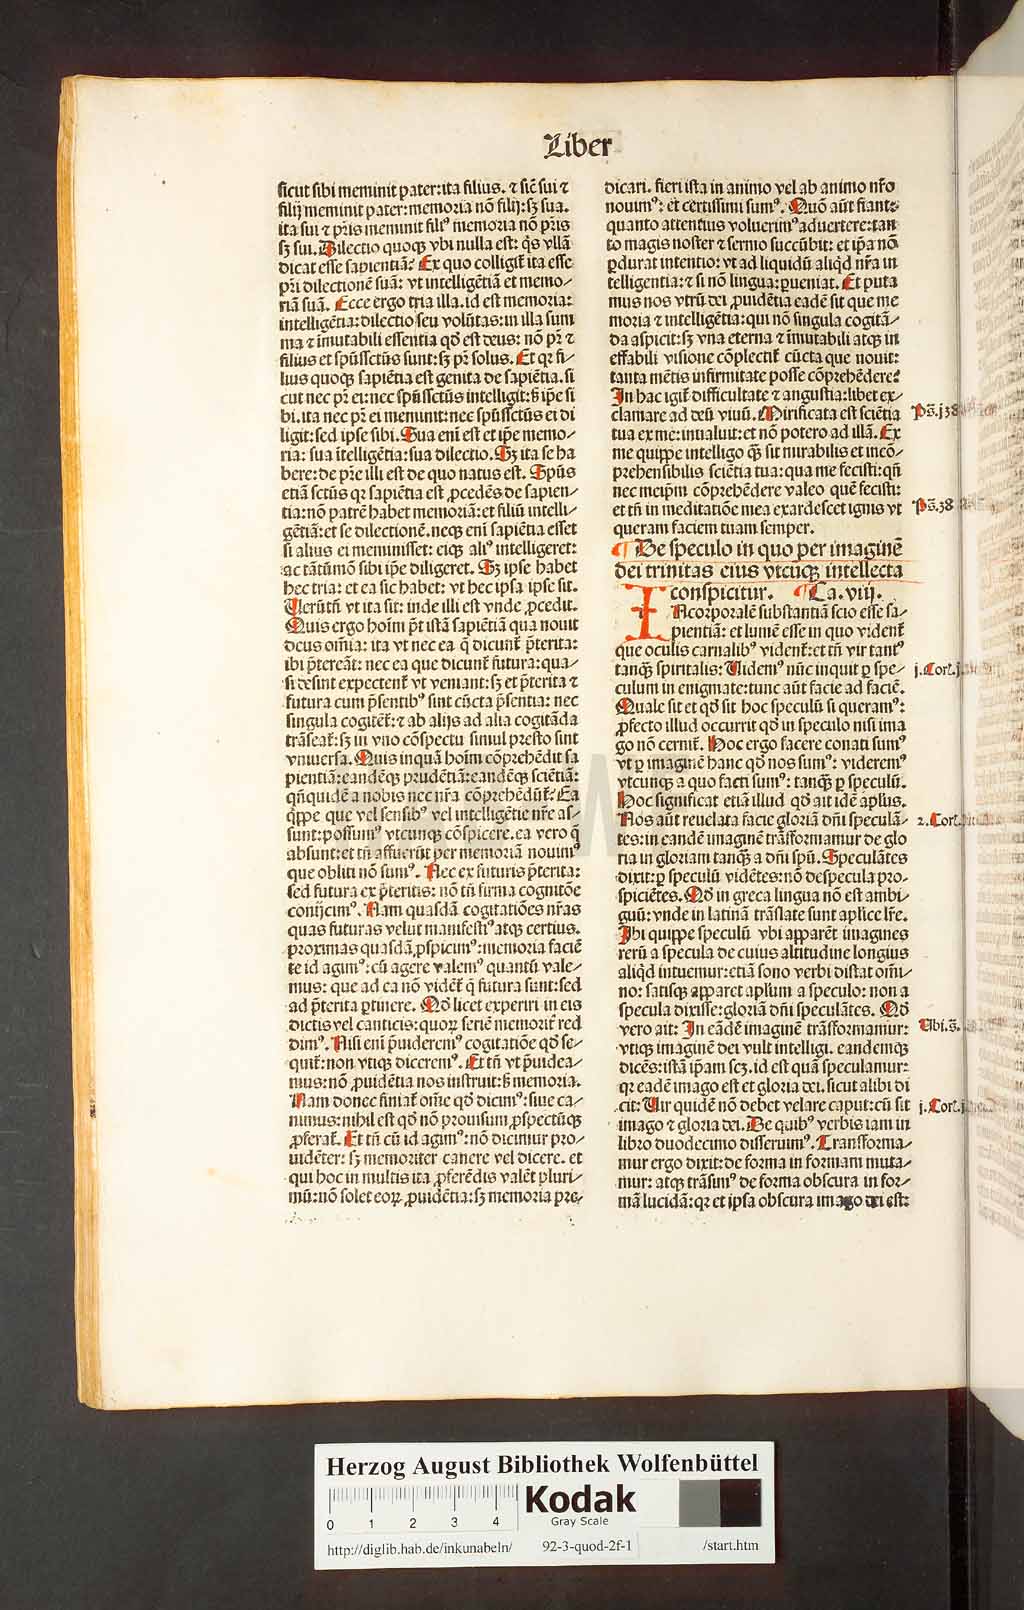 Liber
sicut sibi meminit pater: ita filius. ⁊ sic̄ sui ⁊
filij meminit pater: memoria nō filij: sꝫ sua.
ita sui ⁊ pr̄is meminit filiꝰ memoria nō pr̄is
sꝫ sui. Dilectio quoqꝫ vbi nulla est: q̄s vllā
dicat esse sapientiā? Ex quo colligit᷑ ita esse
pr̄i dilectionē suā: vt intelligētiā et memo⸗
riā suā. Ecce ergo tria illa. id est memoria:
intelligētia: dilectio seu volūtas: in illa sum
ma ⁊ īmutabili essentia qd̄ est deus: nō pr̄ ⁊
filius et spūssctūs sunt: sꝫ pr̄ solus. Et qꝛ fi⸗
lius quoqꝫ sapiētia est genita de sapiētia. si
cut nec pr̄ ei: nec spūssctūs intelligit: sꝫ ip̄e si
bi. ita nec pr̄ ei meminit: nec spūssctūs ei di
ligit: sed ipse sibi. Sua eni est et ip̄e memo⸗
ria: sua ītelligētia: sua dilectio. Sꝫ ita se ha
bere: de pr̄e illi est de quo natus est. Spūs
etiā sctūs qꝛ sapiētia est ꝓcedēs de sapien⸗
tia: nō patrē habet memoriā: et filiū intelli⸗
gētiā: et se dilectionē. neqꝫ eni sapiētia esset
si alius ei meminisset: eiqꝫ aliꝰ intelligeret:
ac tātūmō sibi ip̄e diligeret. Sꝫ ipse habet
hec tria: et ea sic habet: vt hec ipsa ipse sit.
Uerūtn̄ vt ita sit: inde illi est vnde ꝓcedit.
Quis ergo hoīm pt̄ istā sapiētiā qua nouit
deus om̄ia: ita vt nec ea q̄ dicunt᷑ p̄terita:
ibi p̄tereāt: nec ea que dicunt᷑ futura: qua⸗
si desint expectent᷑ vt veniant: sꝫ et p̄terita ⁊
futura cum p̄sentibꝰ sint cūcta p̄sentia: nec
singula cogitēt᷑: ⁊ ab alijs ad alia cogitāda
trāseat᷑: sꝫ in vno cōspectu simul presto sint
vniuersa. Quis inquā hoīm cōprehēdit sa
pientiā: eandēqꝫ prudētiā: eandēqꝫ sciētiā:
qn̄quidē a nobis nec nr̄a cōprehēdūt᷑? Ea
q̄ppe que vel sensibꝰ vel intelligētie nr̄e as⸗
sunt: possumꝰ vtcunqꝫ cōspicere. ea vero q̄
absunt: et tn̄ affuerūt per memoriā nouimꝰ
que obliti nō sumꝰ. Nec ex futuris p̄terita:
sed futura ex p̄teritis: nō tn̄ firma cognitōe
conijcimꝰ. Nam quasdā cogitatiōes nr̄as
quas futuras velut manifestiꝰ atqꝫ certius.
proximas quasdā ꝓspicimꝰ: memoria faciē
te id agimꝰ: cū agere valemꝰ quantū vale⸗
mus: que ad ea nō videt᷑ q̄ futura sunt: sed
ad p̄terita ꝑtinere. Qd̄ licet experiri in eis
dictis vel canticis: quoꝝ seriē memorit᷑ red
dimꝰ. Nisi eni p̄uideremꝰ cogitatiōe qd̄ se⸗
quit᷑: non vtiqꝫ diceremꝰ. Et tn̄ vt p̄uidea⸗
mus: nō ꝓuidētia nos instruit: sꝫ memoria.
Nam donec finiat᷑ om̄e qd̄ dicimꝰ: siue ca⸗
nimus: nihil est qd̄ nō prouisum ꝓspectūqꝫ
ꝓferat᷑. Et tn̄ cū id agimꝰ: nō dicimur pro⸗
uidēter: sꝫ memoriter canere vel dicere. et
qui hoc in multis ita ꝓferēdis valēt pluri⸗
mū: nō solet eoꝝ ꝓuidētia: sꝫ memoria pre⸗
dicari. fieri ista in animo vel ab animo nr̄o
nouimꝰ: et certissimi sumꝰ. Quō aūt fiant:
quanto attentius voluerimꝰ aduertere: tan
to magis noster ⁊ sermo succūbit: et ip̄a nō
ꝑdurat intentio: vt ad liquidū aliqd̄ nr̄a in
telligentia: ⁊ si nō lingua: ꝑueniat. Et puta
mus nos vtrū dei ꝓuidētia eadē sit que me
moria ⁊ intelligētia: qui nō singula cogitā⸗
da aspicit: sꝫ vna eterna ⁊ īmutabili atqꝫ in
effabili visione cōplectit᷑ cūcta que nouit:
tanta mētis infirmitate posse cōprehēdere?
In hac igit᷑ difficultate ⁊ angustia: libet ex⸗
clamare ad deū viuū. Mirificata est sciētia
tua ex me: inualuit: et nō potero ad illā. Ex
me quippe intelligo q̄ sit mirabilis et incō⸗
prehensibilis sciētia tua: qua me fecisti: qn̄
nec meip̄m cōprehēdere valeo quē fecisti:
et tn̄ in meditatiōe mea exardescet ignis vt
queram faciem tuam semper.
¶ De speculo in quo per imaginē
dei trinitas eius vtcūqꝫ intellecta
conspicitur. ¶ Ca. viij.
INcorporalē substantiā scio esse sa⸗
pientiā: et lumē esse in quo vident᷑
que oculis carnalibꝰ vident᷑: et tn̄ vir tantꝰ
tanqꝫ spiritalis: Uidemꝰ nūc inquit ꝑ spe⸗
culum in enigmate: tunc aūt facie ad faciē.
Quale sit et qd̄ sit hoc speculū si queramꝰ:
ꝓfecto illud occurrit qd̄ in speculo nisi ima
go nō cernit᷑. Hoc ergo facere conati sumꝰ
vt ꝑ imaginē hanc qd̄ nos sumꝰ: videremꝰ
vtcunqꝫ a quo facti sumꝰ: tanqꝫ ꝑ speculū.
Hoc significat etiā illud qd̄ ait idē apl̄us.
Nos aūt reuelata facie gloriā dn̄i speculā⸗
tes: in eandē imaginē trāsformamur de glo
ria in gloriam tanqꝫ a dn̄i spū. Speculātes
dixit: ꝑ speculū vidētes: nō de specula pro⸗
spiciētes. Qd̄ in greca lingua nō est ambi⸗
guū: vnde in latinā trāslate sunt apl̄ice lr̄e.
Ibi quippe speculū vbi apparēt imagines
rerū a specula de cuius altitudine longius
aliqd̄ intuemur: etiā sono verbi distat om̄i⸗
no: satisqꝫ apparet apl̄um a speculo: non a
specula dixisse: gloriā dn̄i speculātes. Qd̄
vero ait: In eādē imaginē trāsformamur:
vtiqꝫ imaginē dei vult intelligi. eandemqꝫ
dicēs: istā ip̄am scꝫ. id est quā speculamur:
qꝛ eadē imago est et gloria dei. sicut alibi di
cit: Uir quidē nō debet velare caput: cū sit
imago ⁊ gloria dei. De quibꝰ verbis iam in
libro duodecimo disseruimꝰ. Transforma⸗
mur ergo dixit: de forma in formam muta⸗
mur: atqꝫ trāsimꝰ de forma obscura in for⸗
mā lucidā: qꝛ et ipsa obscura imago dei est:
Ps̄. j38
Ps̄. 38
j. Cort. j
2. Cort.
Ubi. s̄.
j. Cort. j
Herzog August Bibliothek Wolfenbüttel
0 1 2 3 4
Kodak
Gray Scale
http://diglib.hab.de/inkunabeln/ 92-3-quod-2f-1 /start.htm